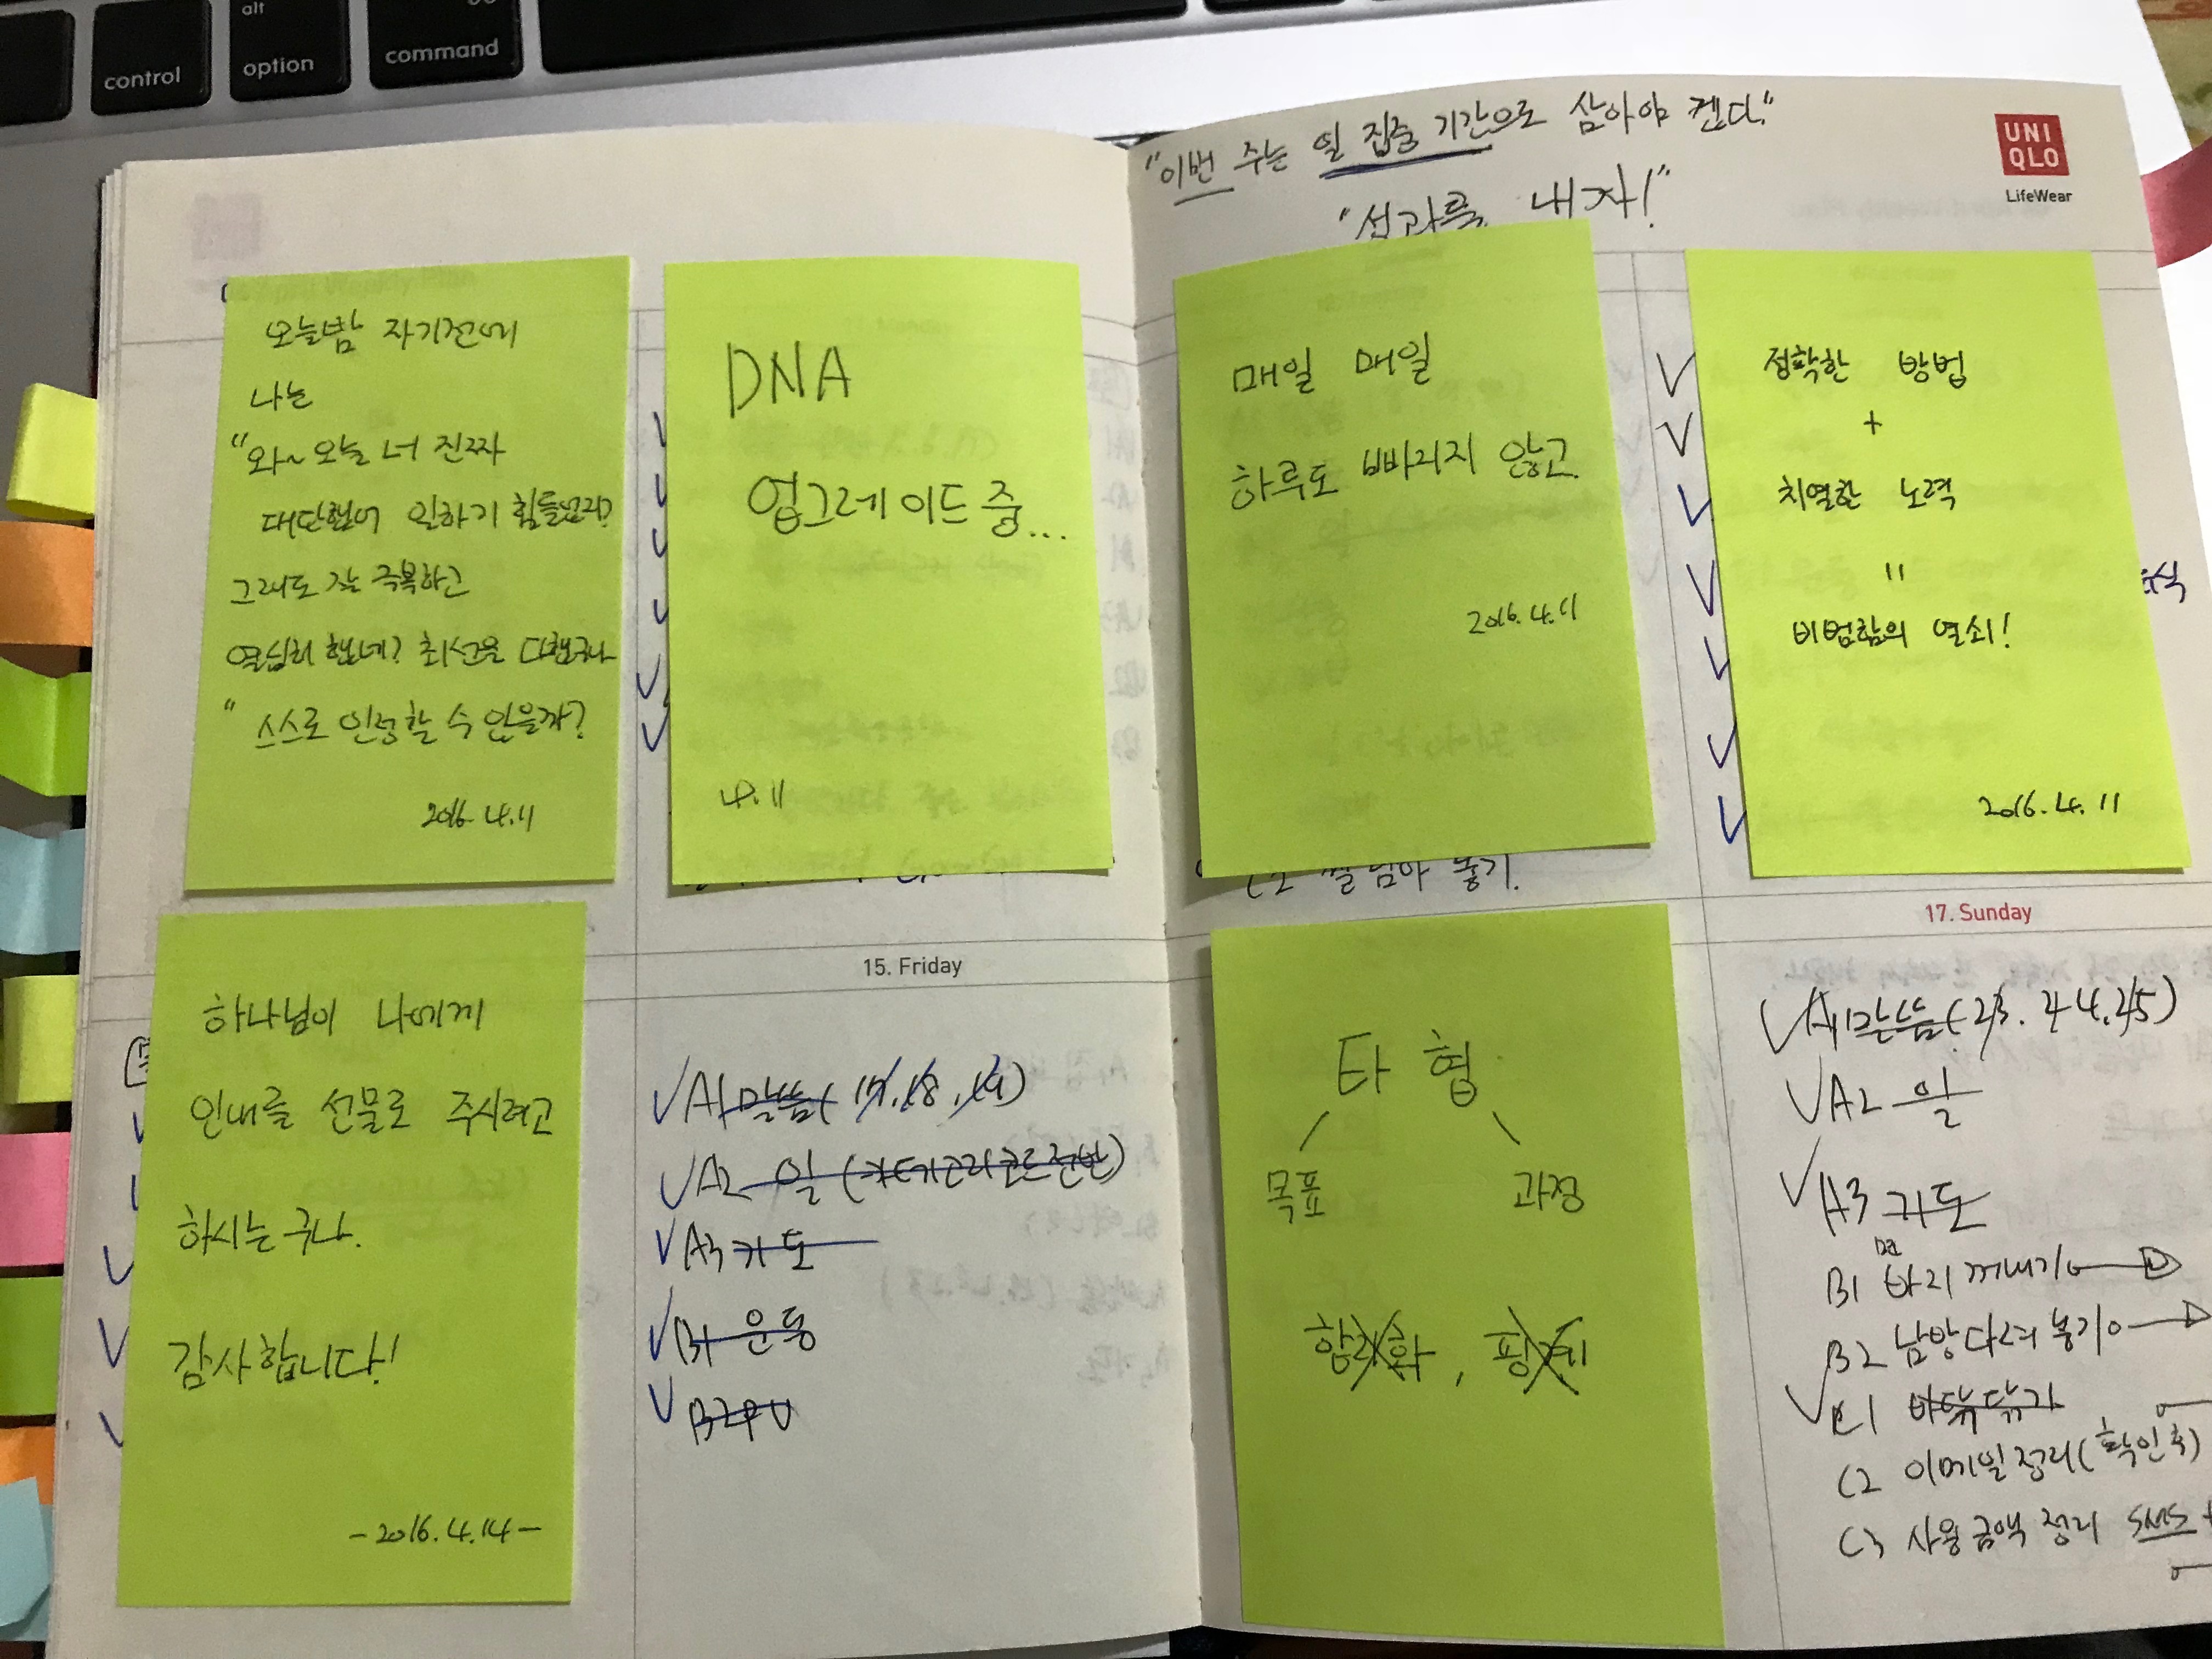 alt
control
option
command
"이번 주는 일 집중 기간으로 삼아야 켔다."
"성과를 내자!"
UNI
QLO
LifeWear
오늘밤 자기전에
나는
"와~ 오늘 너 진짜
대단했어 일하기 힘들었지?
그래도 잘 극복하고
열심히 했네? 최선을 다했구나
" 스스로 인정할 수 있을까?
2016.4.11
DNA
업그레이드 중...
4.11
매일 매일
하루도 빠지지 않고
2016.4.11
정확한 방법
+
치열한 노력
=
비범함의 열쇠!
2016.4.11
C2 쌀 담아 놓기.
하나님이 나에게
인내를 선물로 주시려고
하시는구나.
감사합니다!
-2016.4.14-
15. Friday
A1 말씀(17,18,19)
A2 일 (카테고리코드전반)
A3 기도
B1 운동
B2 PU
타협
목표 과정
합리화, 핑계
17. Sunday
A1 말씀(23.24.25)
A2 일
A3 기도
B1 바지 꺼내기
B2 남방 다려 놓기
C1 바닥닦기
C2 이메일정리(확인후)
C3 사용금액 정리 SMS +